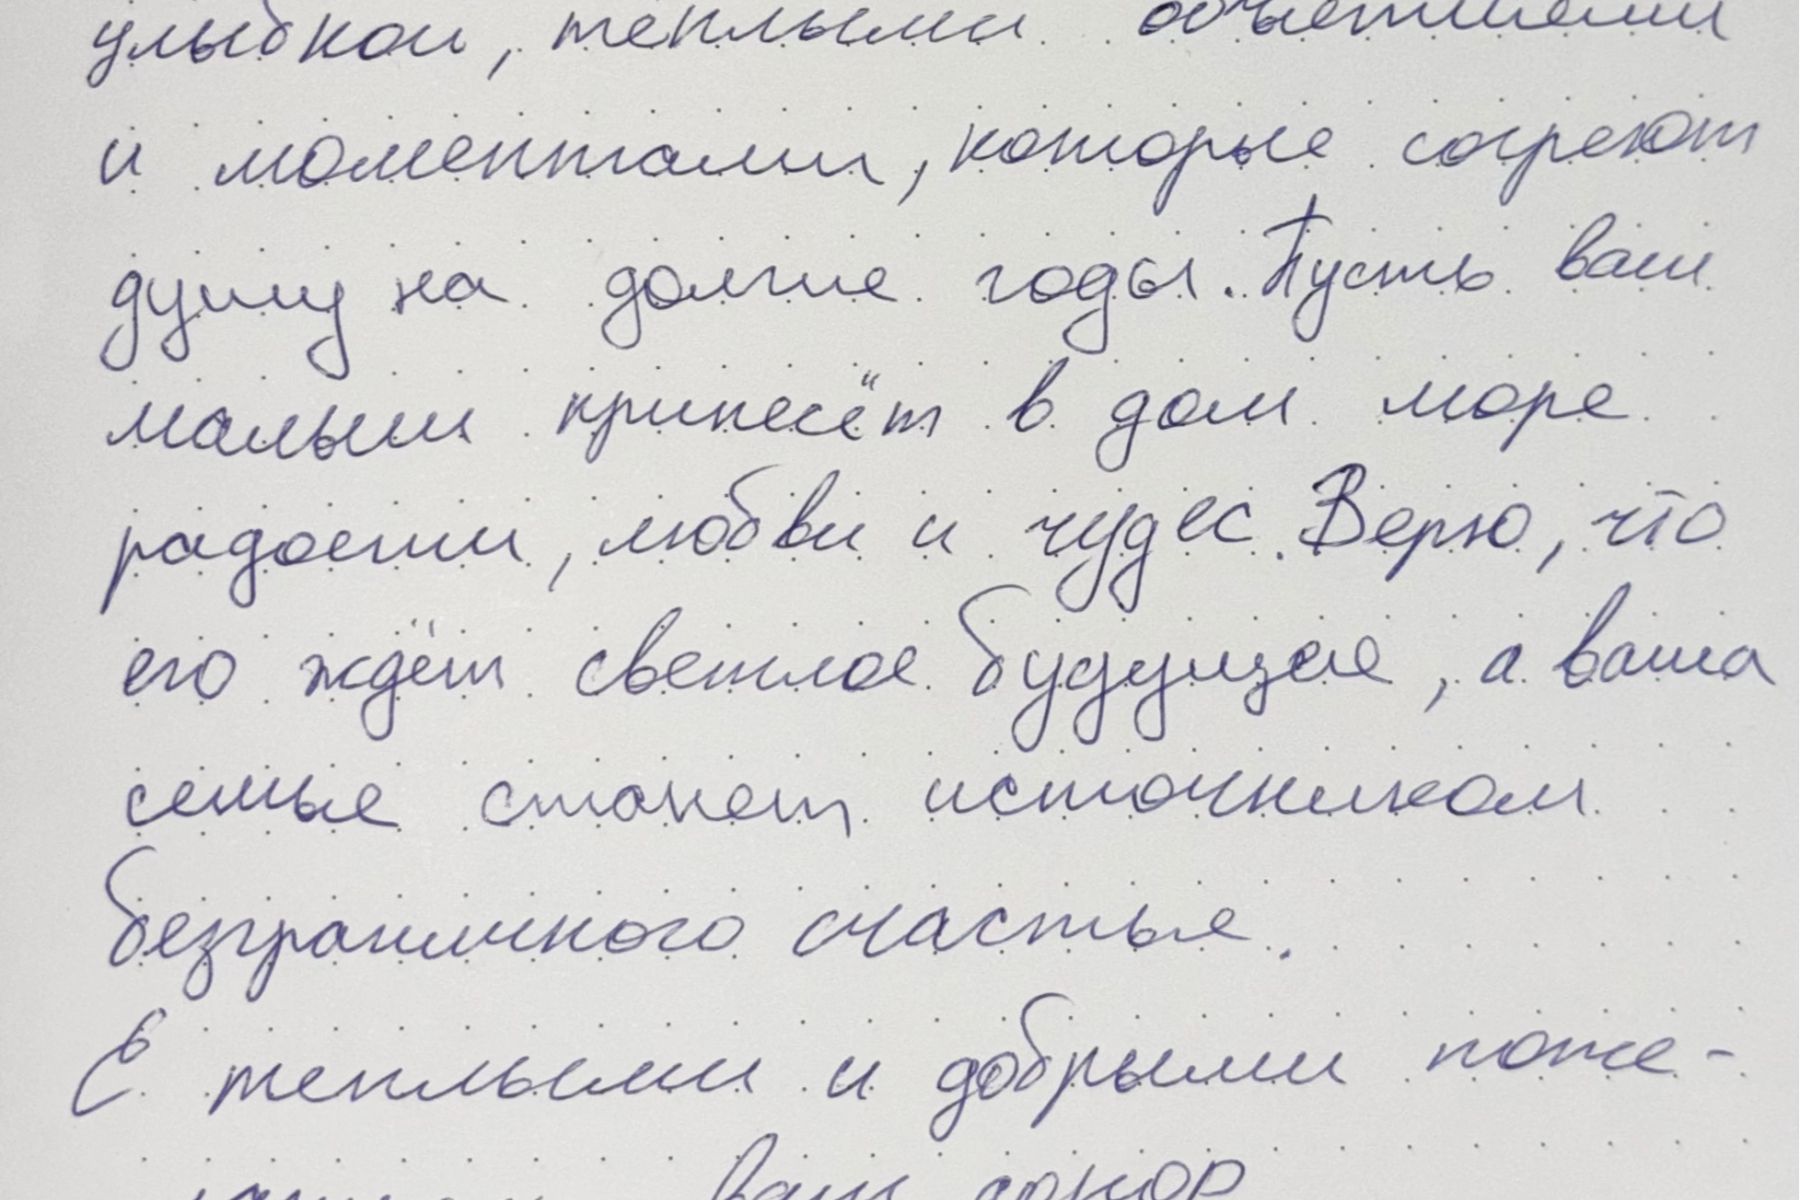 улыбкой, теплыми объятиями
и моментами, которые согреют
душу на долгие годы. Пусть ваш
малыш принесёт в дом море
радости, любви и чудес. Верю, что
его ждёт светлое будущее, а ваша
семье станет источником
безграничного счастья.
С теплыми и добрыми поже-
ваш донор